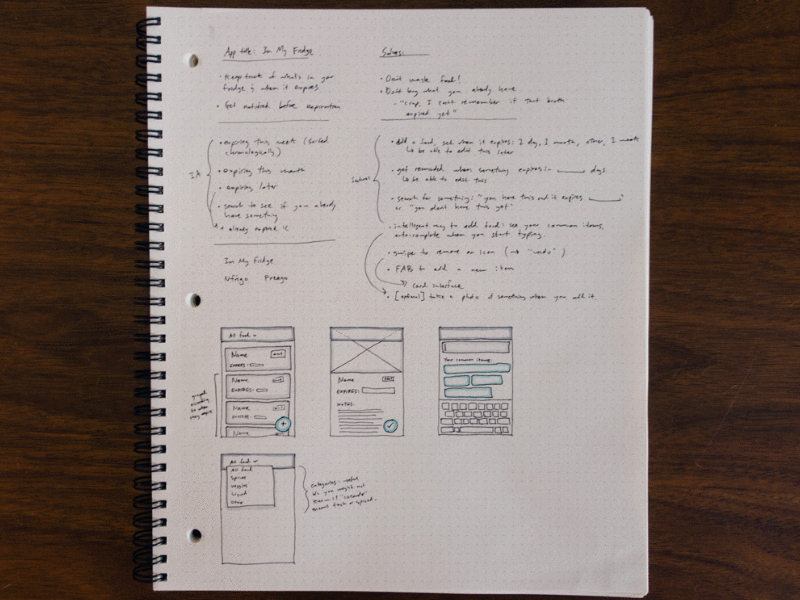 App title: In My Fridge
• Keep track of what's in your
fridge & when it expires
• Get notified before expiration
Solves:
• Don't waste food!
• Don't buy what you already have
- "crap, I can't remember if that broth
expired yet"
IA
• expiring this week (sorted
chronologically)
• expiring this month
• expiring later
• search to see if you already
have something
• already expired
In My Fridge
Prego
• Add a food, set when it expires: 1 day, 1 month, other, 1 week
↳ be able to edit this later
• get reminded when something expires: ____ days
↳ be able to edit this
• search for something: "you have this and it expires ____"
or "you don't have this yet"
• intelligent way to add food: see your common items,
auto-complete when you start typing.
• swipe to remove an item (→ "undo")
• FAB to add a new item
↳ card interface
• [optional] take a photo of something when you add it.
All food
Name
EXPIRES:
Name
EXPIRES:
Name
EXPIRES:
Name
+
Name
EXPIRES:
NOTES:
Your common items:
All food
All food
Spices
veggies
Other
categories: useful
b/c you might not
know if "coriander"
means fresh or spiced.